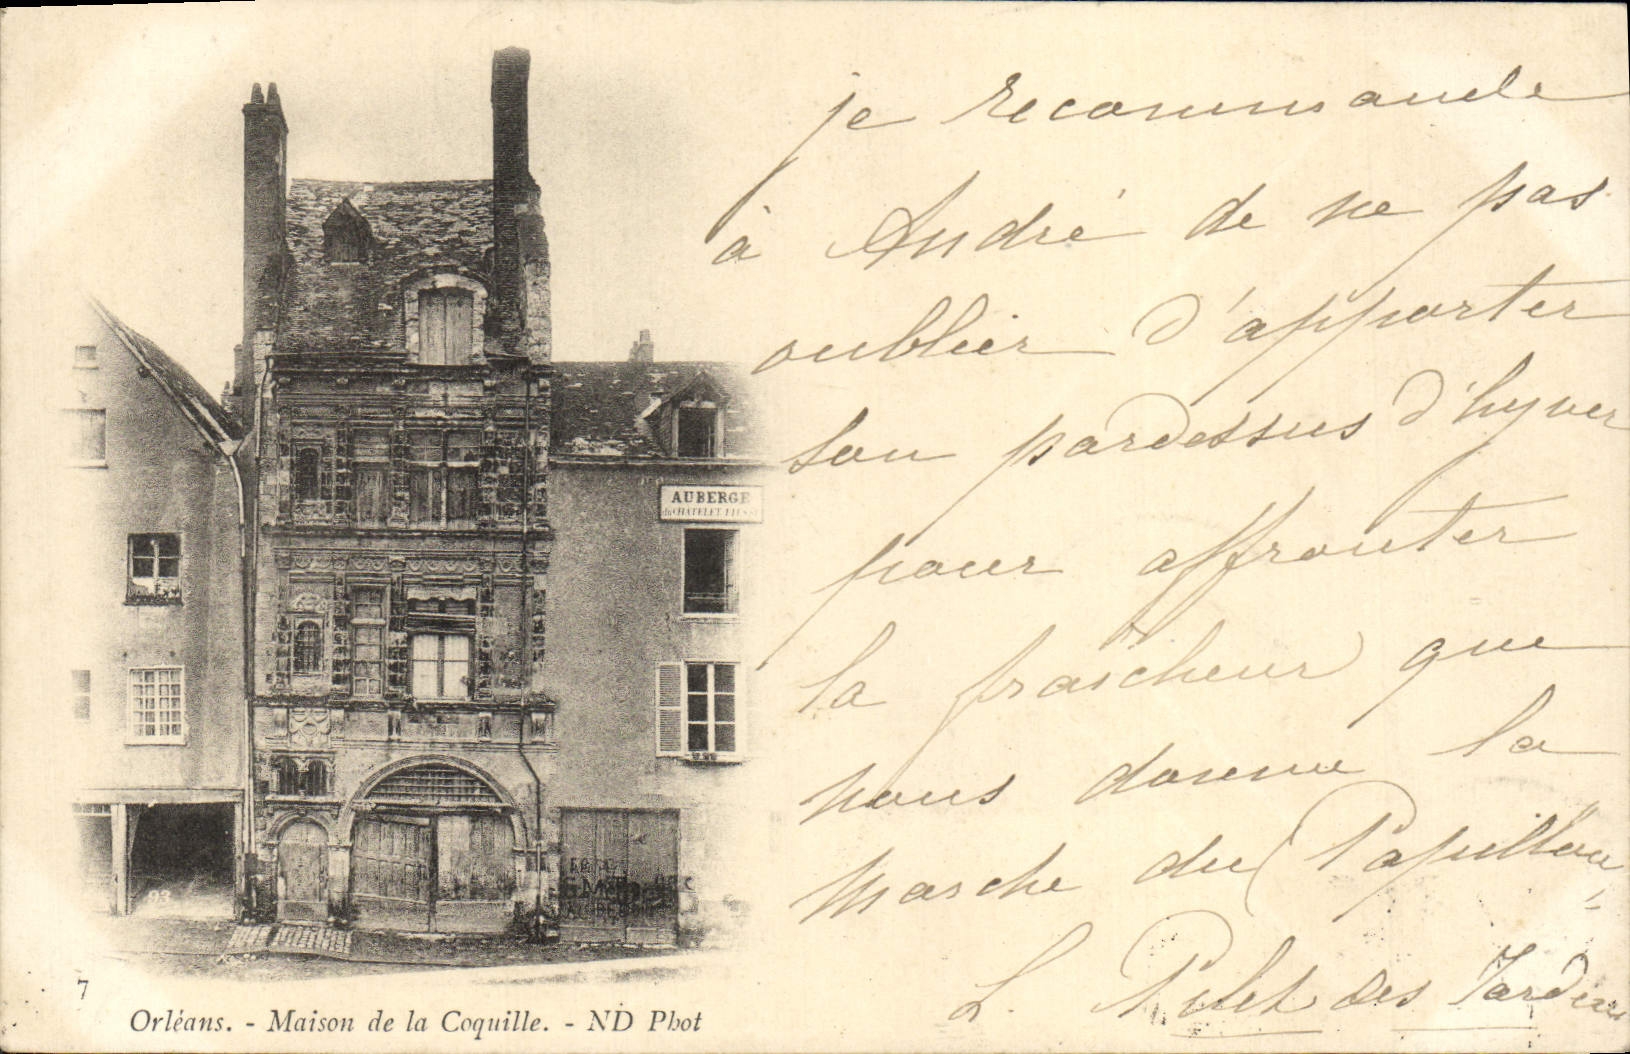 je recommande
à André de ne pas
oublier d'apporter
son pardessus d'hyver
pour affronter
la fraicheur que
nous donne la
marche du Papillon
L. Pulet des Jardins
AUBERGE
du CHATELET
93
7
Orléans. - Maison de la Coquille. - ND Phot